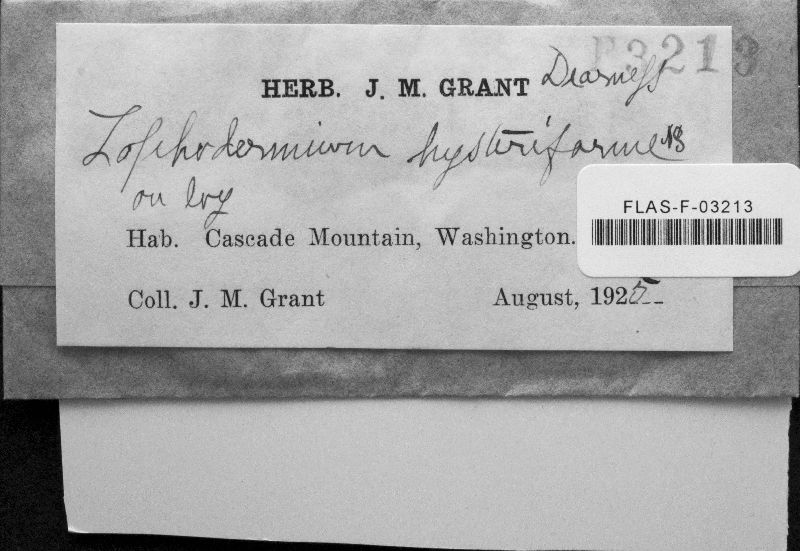 F3213
HERB. J. M. GRANT Dearness
Lophodermium hysteriforme
on
FLAS-F-03213
Hab. Cascade Mountain, Washington.
Coll. J. M. Grant August, 1925